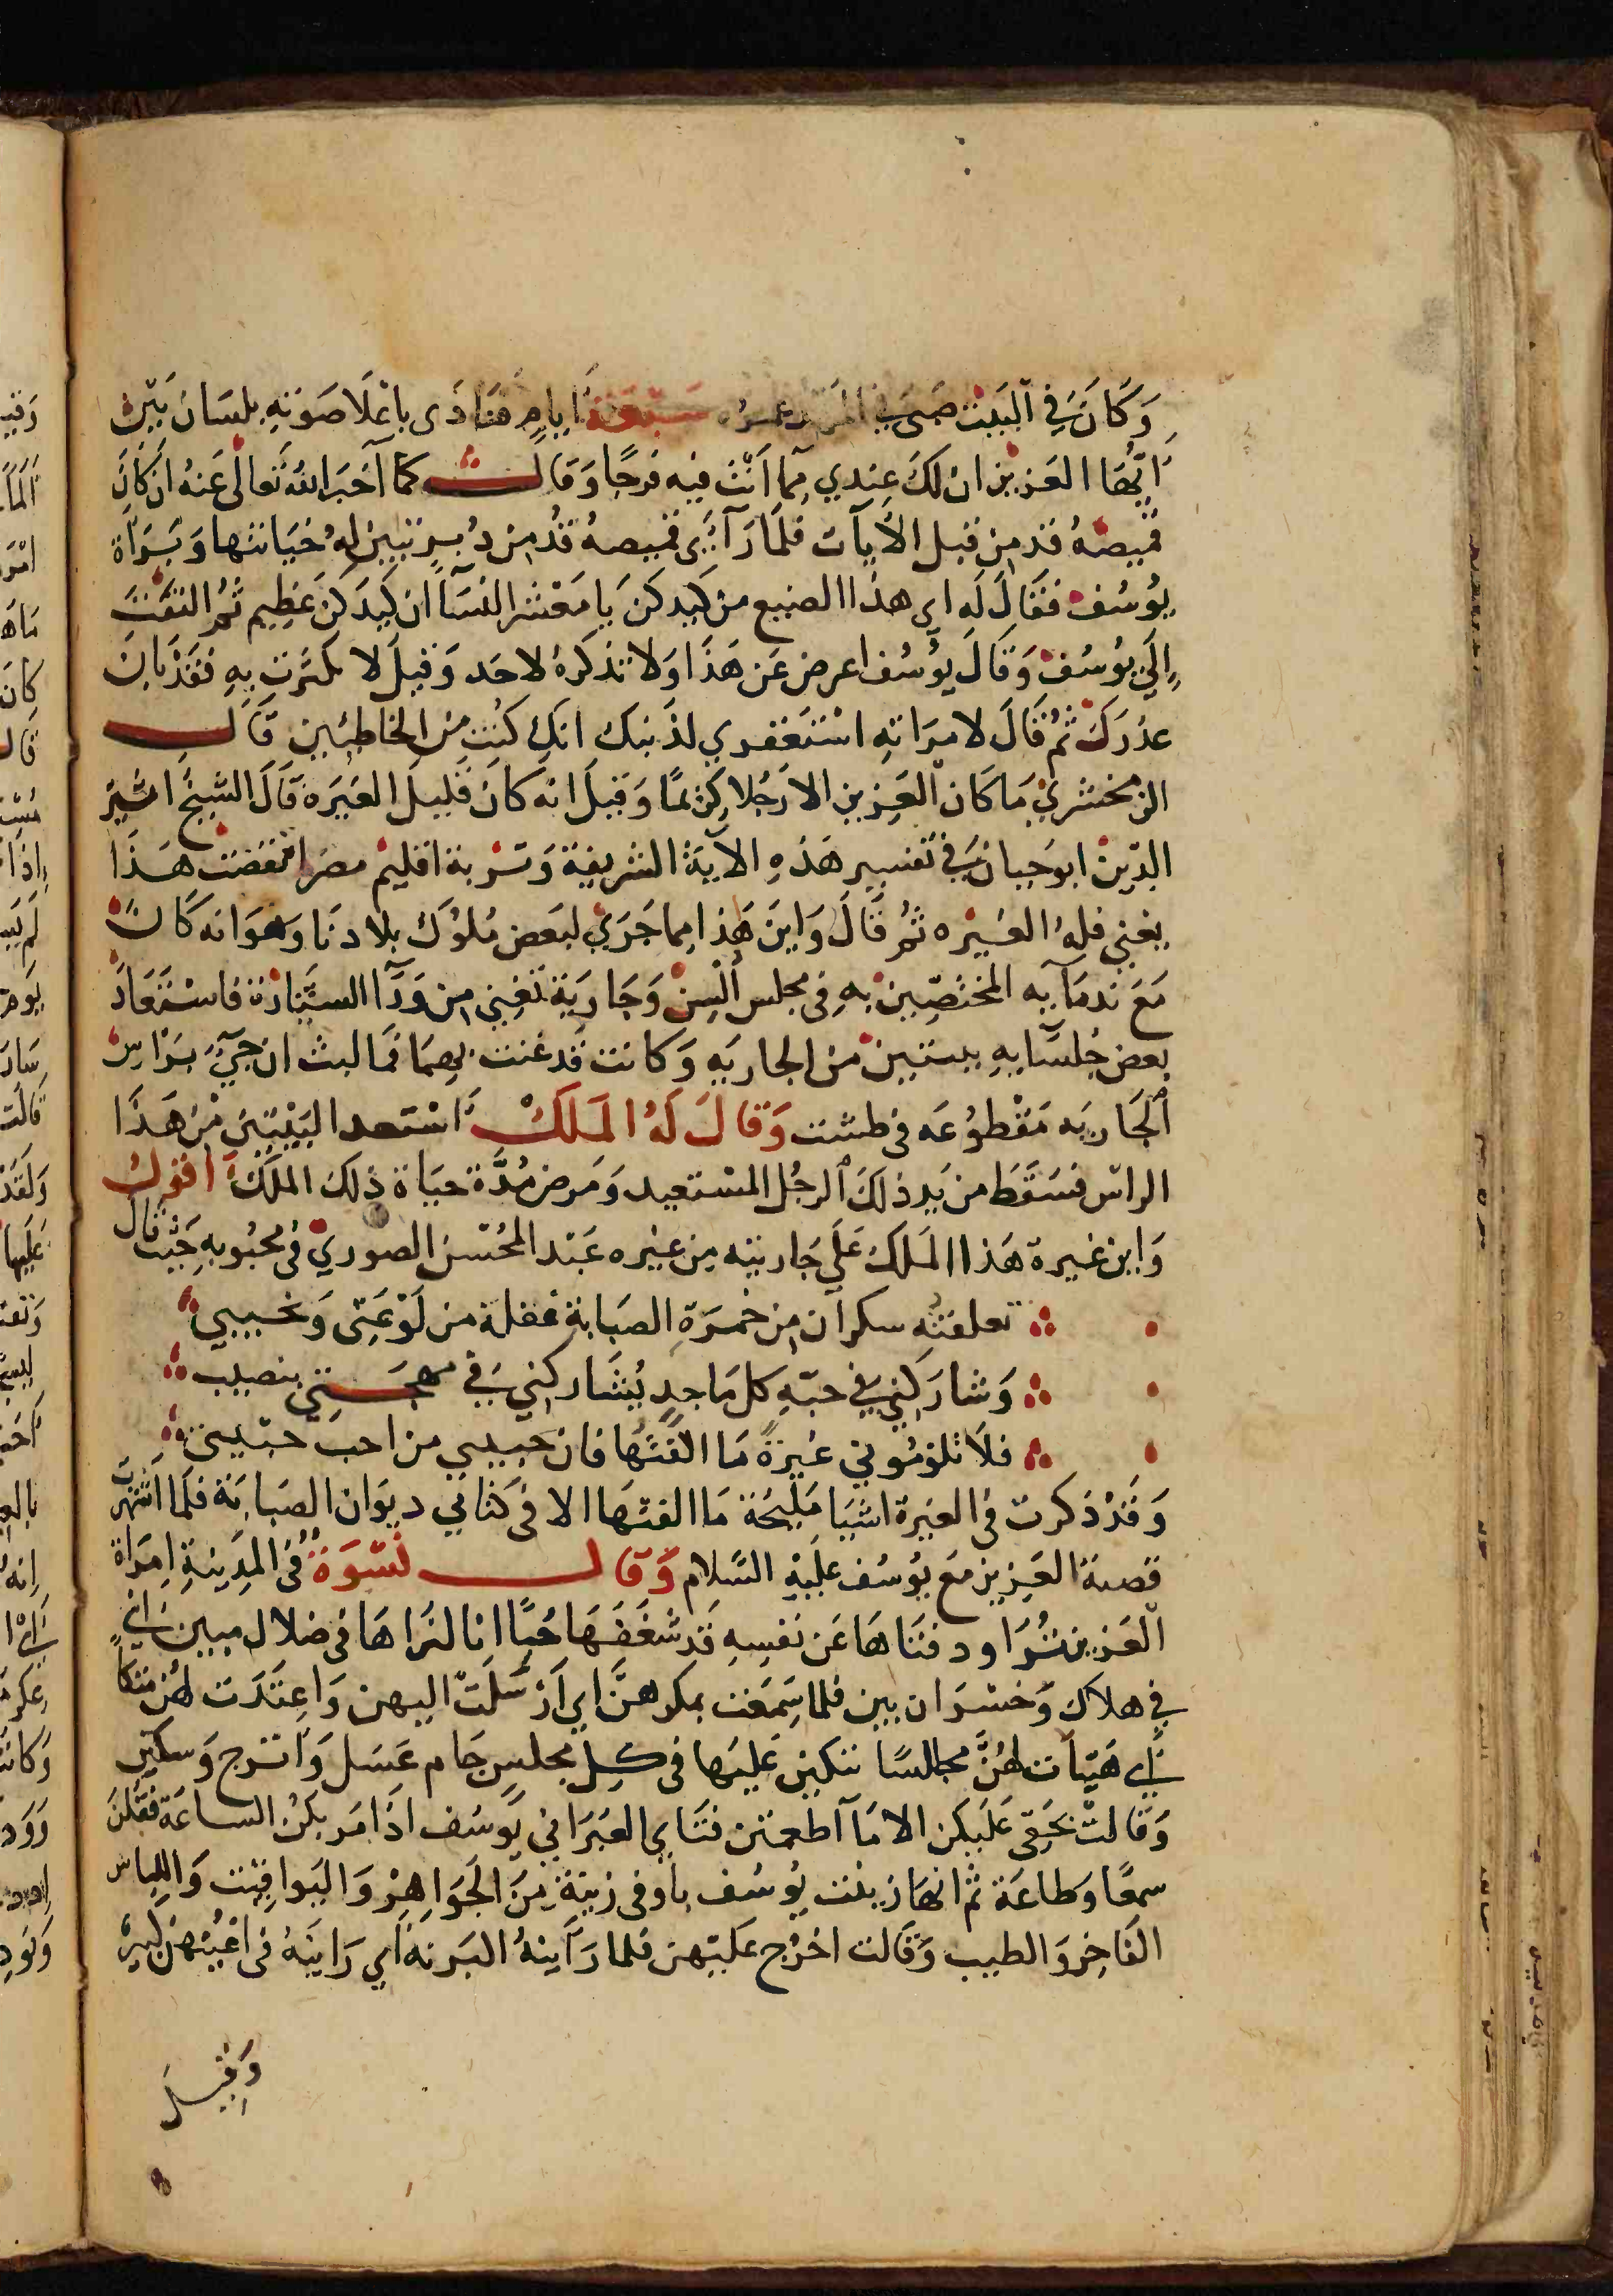 وَكَانَ فِي الْبَيْت صَبِى فِي المهد عمره سَبْعَة اَيامٍ فَنَادَى باعْلَا صَوْتِهِ بلسَان بَيّن
اَيُّهَا العَزيز ان لكَ عِندِي مِمّا اَنْتَ فيه فرجًا وَقَالت كمَا آخبَر اللهُ تَعالَى عَنهُ ان كَانَ
قميصهُ قد مِن قبل الأيات فلمَا رَآى قميصهُ قُدّ مِن دُبرٍ تبين لهُ خيَانتها وَبَرَاة
يُوسُف فقَالَ لَه اي هذا الصنيع من كيدكن يَا مَعْشر النسَآ ان كيدَكن عَظِيم ثمُ التفَتَ
اِلَي يُوسُف وَقَالَ يُوسُف اعرض عَن هَذَا وَلا تذكرهُ لاحَد وَقيلَ لا تكترت بِهِ فقَدْ بَانَ
عذرَكَ ثُم قَالَ لامرَاتِهِ اسْتَغفري لذَنبك انكِ كنتِ مِن الخَاطئين قَالَ
الزمخشري مَا كَانَ العَزيز الا رَجُلا كريمًا وَقيلَ انه كانَ قليلَ الغيرَة قَالَ الشيخ اثير
الدّين ابو حَيان فِي تفسير هَذهِ الآيَة الشريفة وَتربة اقليم مصر اقتضت هَذَا
يعني قلة الغيْره ثمُ قَالَ وَاينَ هَذا مِما جَرَي لبَعض مُلوُك بلادنَا وَهوَ انه كَانَ
مَعَ ندمَآيه المختصّين بهِ فى مجلس اُنس وَجَاريَة تَغني من وَرَآ السّتارَة فاسْتَعَادَ
بعض جُلسَآيهِ بيتين من الجاريَه وَكانت قد غنت بهمَا فمَا لبث ان جِيَ بَرَاسِ
الجَاريَه مَقْطوُعَه فى طشت وَقالَ لهُ المَلكْ اسْتعد البَيْتيْنِ مْن هَذَا
الراس فسَقَطَ من يَد ذلكَ الرجُل المسْتعيد وَمَرض مُدَّة حيَاة ذلك الملكَ اقول
وَاين غيرة هَذا المَلكَ عَلَي جَاريته مِن غيْره عَبْد المُحْسن الصوري فى محبُوبهِ حَيْث قال
تعلقته سكران مِن خمرَةِ الصبَابة غفلة من لَوْعَتِى وَنحيبي
وَشارَكني فِي حبّهِ كل مَاجدٍ يُشَاركني فِي مهجَتِي بنصيب
فلا تلوُموُني غيرَةً مَا الفتَها فان حبيبي من احب حبيبى
وَقَدْ ذكرت فى الغيرَة اشيَا مَليحَة مَا الفتهَا الا فى كتابي ديوَان الصبَابَة فلمَا اشتهرت
قصة العَزيز مَع يُوسُف علَيْهِ السَّلام وَقالَ نسْوَة فى المَدينةِ امرَاة
العَزيز ترَاود فتَاهَا عَن نفسِهِ قَد شغَفَهَا حُبًّا انا لنرَاهَا فى ضلال مبين اي
فِي هلاك وَخسْرَان بين فلما سَمعَت بمكرهنَّ اي اَرْسَلَتْ اليهن وَاعتَدَت لهُن متكاً
اي هَيّات لهُنَّ مجالسًا تتكين عَليهَا فى كل مجلسٍ جَام عَسَل وَاترج وَسكين
وَقَالت بحَقِى عَليكن الا مَا آطعمتن فتَاي العبرَاني يُوسُف اذَا مَر بكن الساعَة فقلن
سمعًا وَطاعَة ثم انهَا زينت يُوسُف باوفى زينَة مِنَ الجَوَاهِر وَاليوَاقيْت وَاللباس
الفَاخِر وَالطيب وَقَالت اخرُج عَليهن فلما رَاَينهُ اكبرنه اَي رَاينَهُ فى اعيُنهن كبيرً
وَقيلَ